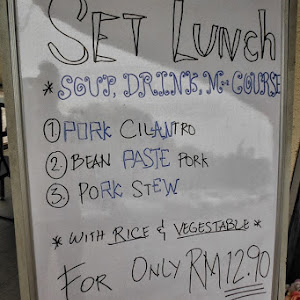 SET LUNCH
* SOUP, DRINK, M-COURSE
1 PORK CILANTRO
2 BEAN PASTE PORK
3. PORK STEW
* WITH RICE & VEGESTABLE *
FOR ONLY RM12.90